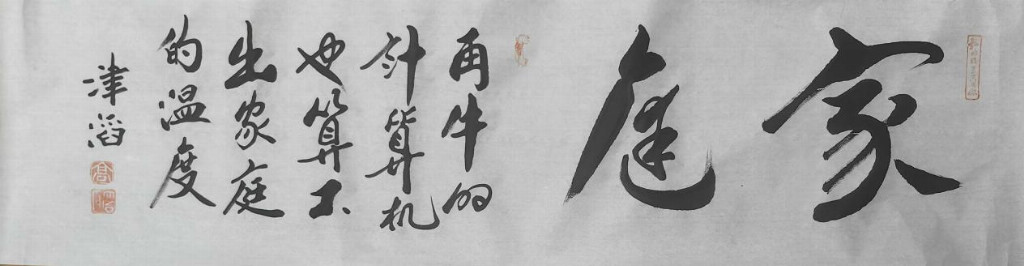 家庭
再牛的
计算机
也算不
出家庭
的温度
津滔